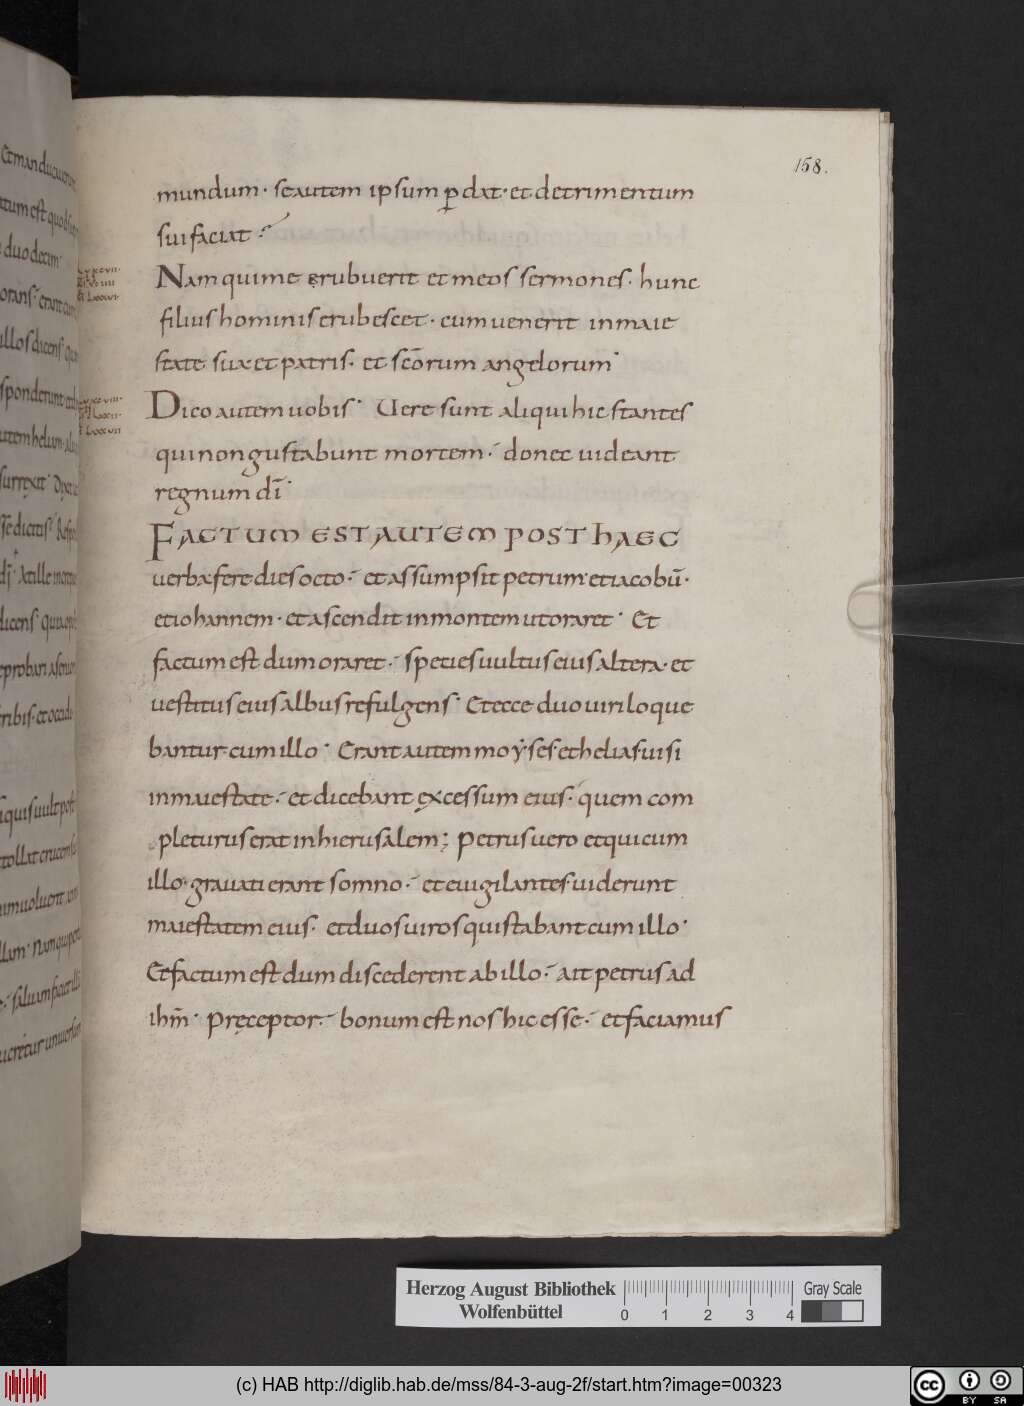 158.
mundum · seautem ipsum p̱dat · et detrimentum
sui faciat ·
Nam qui me erubuerit et meos sermones · hunc
filius hominis erubescet · cum uenerit in maie
state sua et patris · et scōrum angelorum ·
Dico autem uobis · Uere sunt aliqui hic stantes
qui non gustabunt mortem · donec uideant
regnum dī ·
FACTUM EST AUTEM POST HAEC
uerba fere dies octo · et assumpsit petrum et iacobū ·
et iohannem · et ascendit in montem ut oraret · Et
factum est dum oraret · species uultus eius altera · et
uestitus eius albus refulgens · Et ecce duo uiri loque
bantur cum illo · Erant autem moẏses et helias uisi
in maiestate · et dicebant ęxcessum eius · quem com
pleturus erat in hierusalem; Petrus uero et qui cum
illo · grauati erant somno · et euigilantes uiderunt
maiestatem eius · et duos uiros qui stabant cum illo ·
Et factum est dum discederent ab illo · ait petrus ad
ihm̄ · Pręceptor · bonum est nos hic esse · et faciamus
Herzog August Bibliothek
Wolfenbüttel
0 1 2 3 4
Gray Scale
(c) HAB http://diglib.hab.de/mss/84-3-aug-2f/start.htm?image=00323
cc BY SA